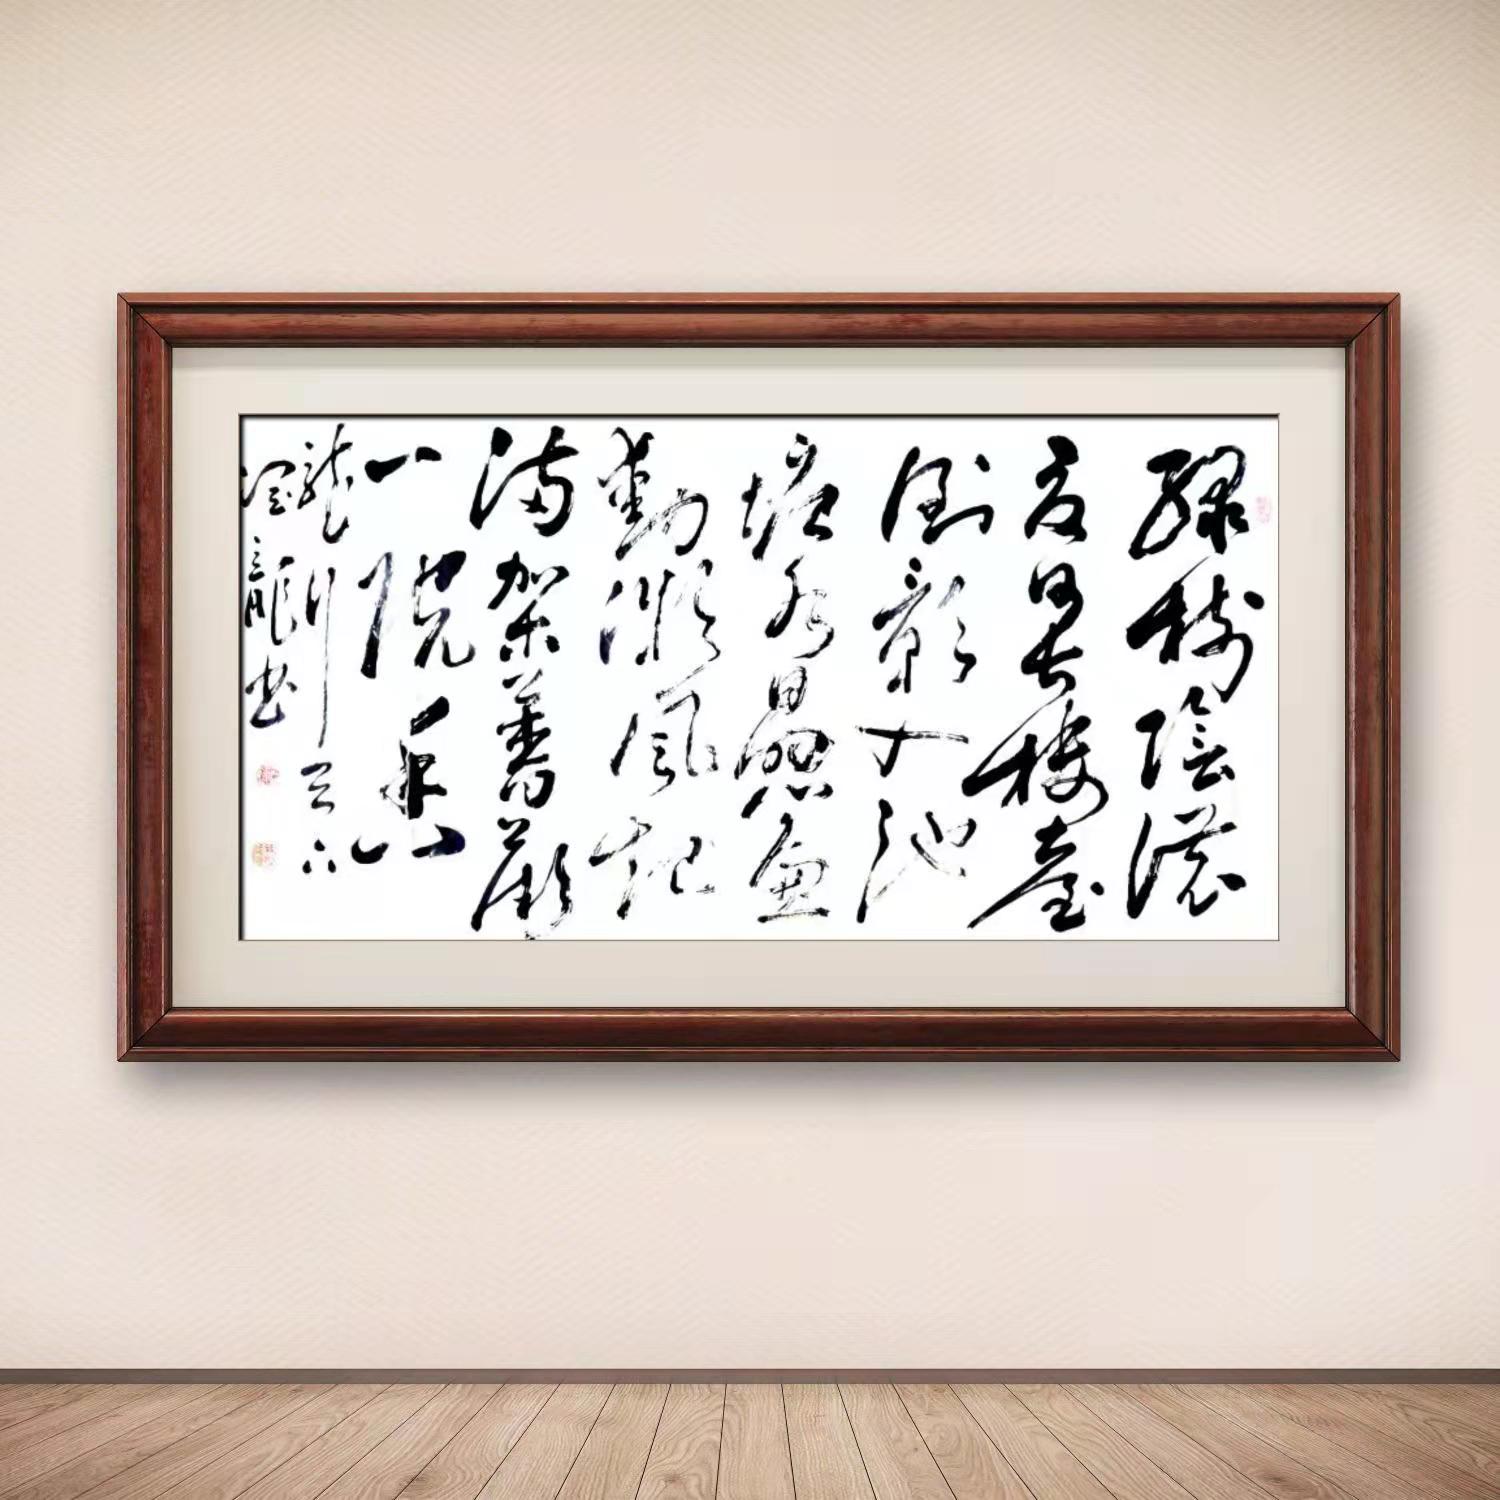 綠樹陰濃
夏日長樓臺
倒影入池
塘水晶簾
動微風起
滿架薔薇
一院香
龍
龍书